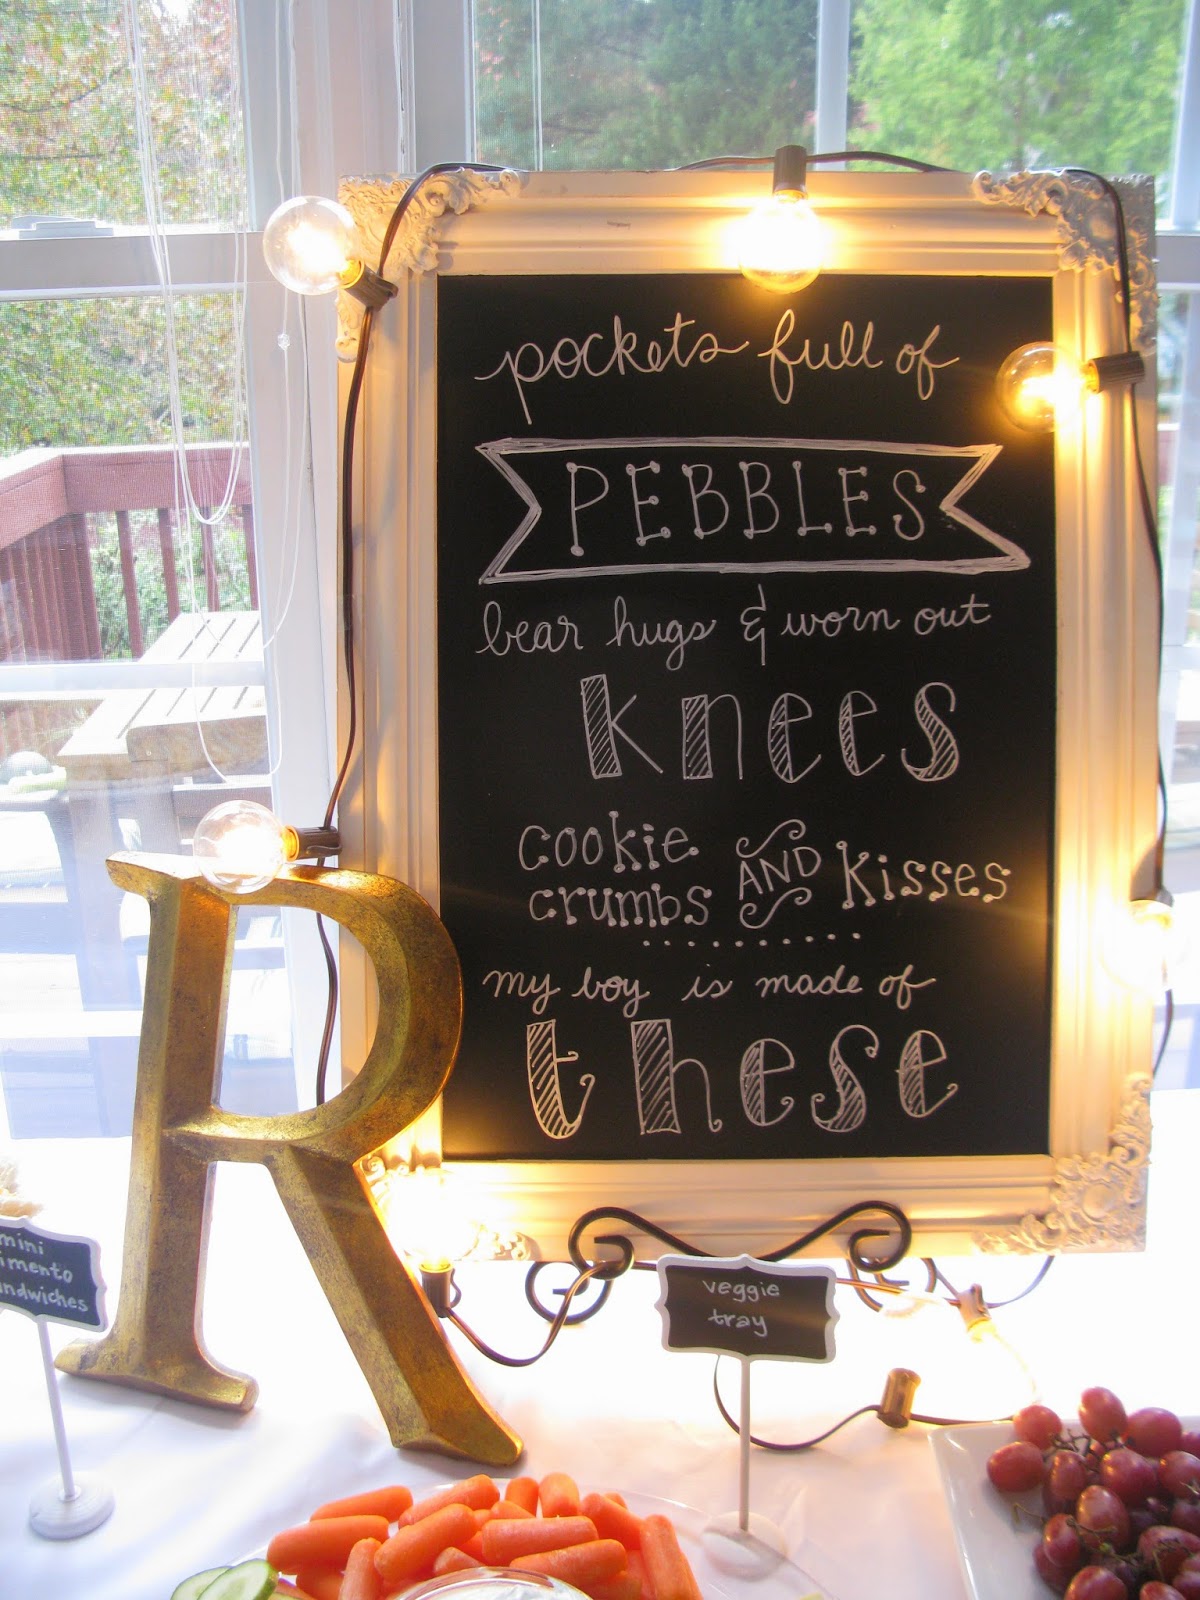 pockets full of
PEBBLES
bear hugs & worn out
knees
cookie
crumbs AND kisses
my boy is made of
these
R
mini
imento
ndwiches
veggie
tray